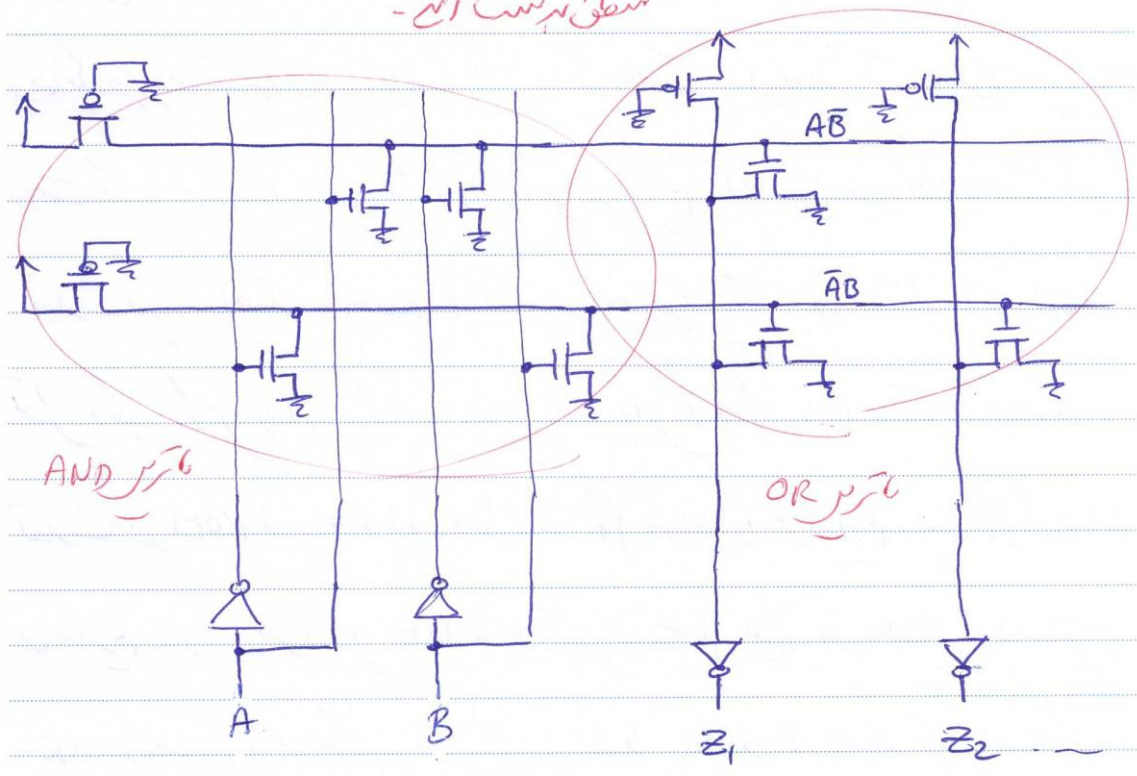 AB̅
A̅B
ماتریس AND
ماتریس OR
A B Z₁ Z₂ ...